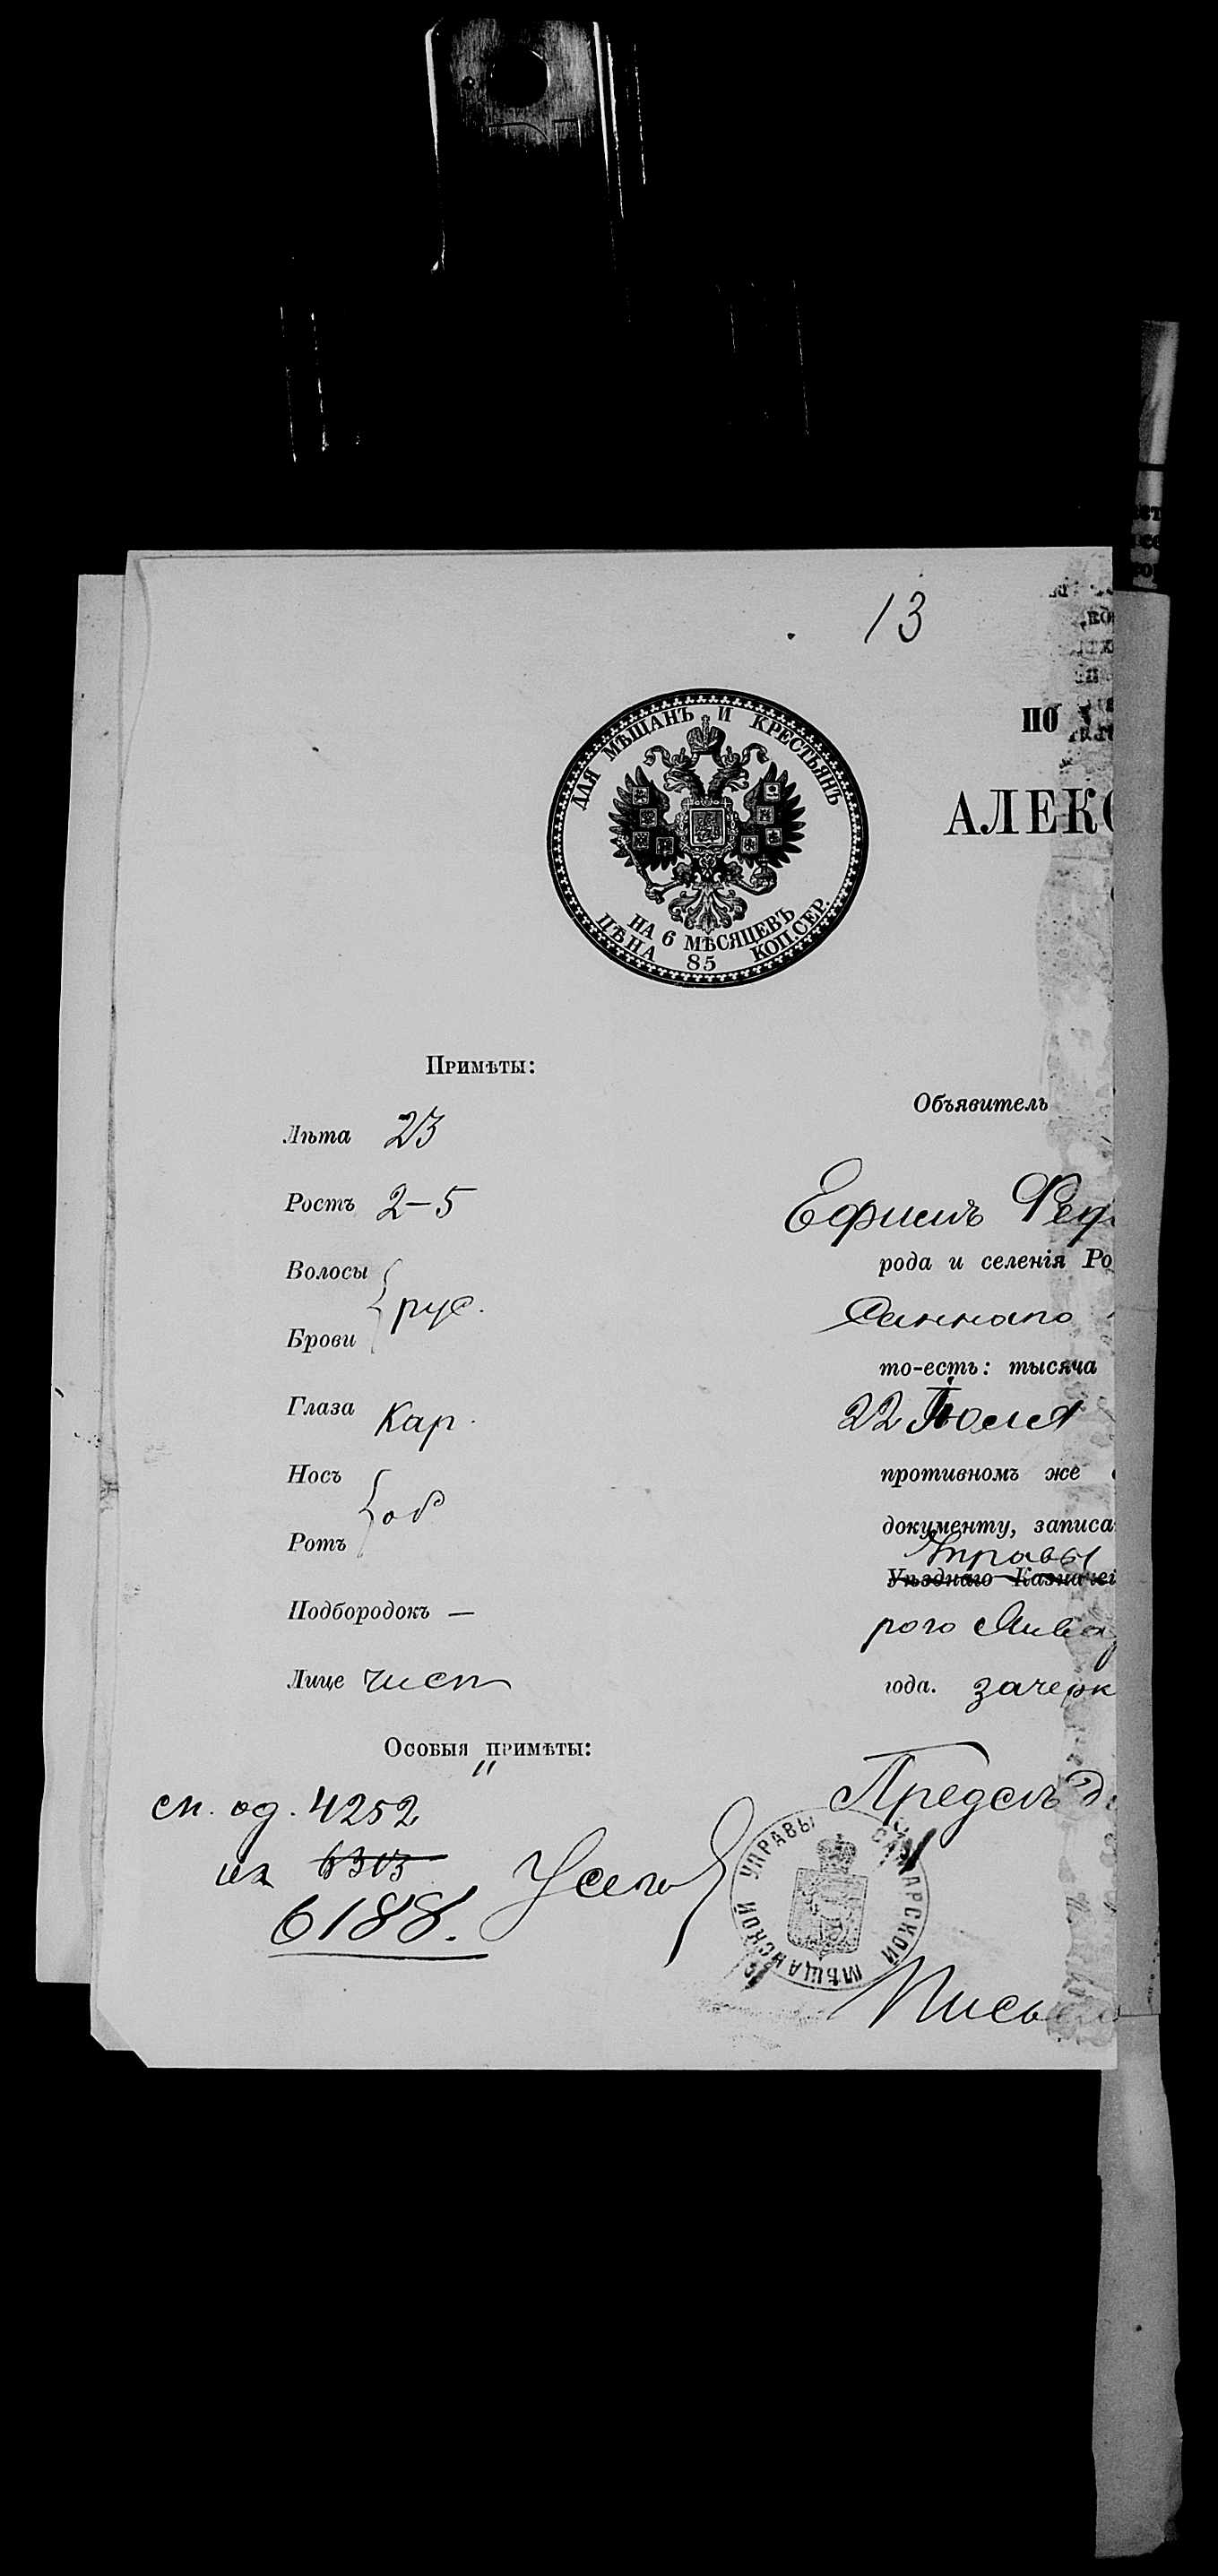 13
ПО
АЛЕКС
ДЛЯ МѢЩАНЪ И КРЕСТЬЯНЪ
НА 6 МѢСЯЦЕВЪ
ЦѢНА 85 КОП. СЕР.
Примѣты:
Лѣта 23
Ростъ 2-5
Волосы
рус.
Брови
Глаза кар.
Носъ
об
Ротъ
Подбородокъ —
Лице чист
Особыя примѣты:
"
4252
6313
6188.
Объявитель
Ефимъ
рода и селенія Ро
то-есть: тысяча
22 Іюля
противномъ же
документу, записа
Управы
Уѣзднаго Казначей
рого Янва
года. зачерк
Предсѣд
САМАРСКОЙ МѢЩАНСКОЙ УПРАВЫ
Письм